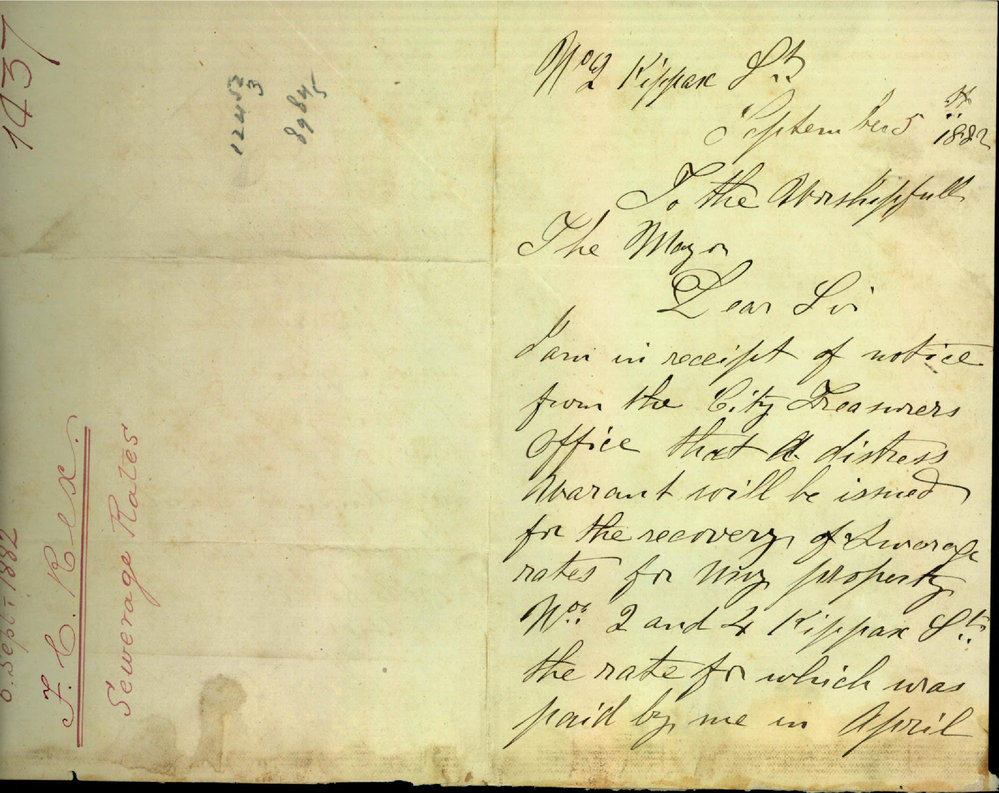 1437
12452
3
8984
5
6. Sept. 1882
F. C. Rex.
Sewerage Rates
No 2 Kippax St
September 5th
1882
To the Worshipfull
The Mayor
Dear Sir
I am in receipt of notice
from the City Treasurers
office that a distress
Warant will be issued
for the recovery of Sewerage
rates for my property
Nos. 2 and 4 Kippax St.
the rate for which was
paid by me in April